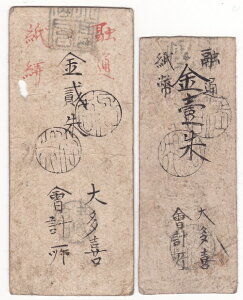 融通
紙幣
金貳朱
大多喜
會計所
融通
紙幣
金壹朱
大多喜
會計